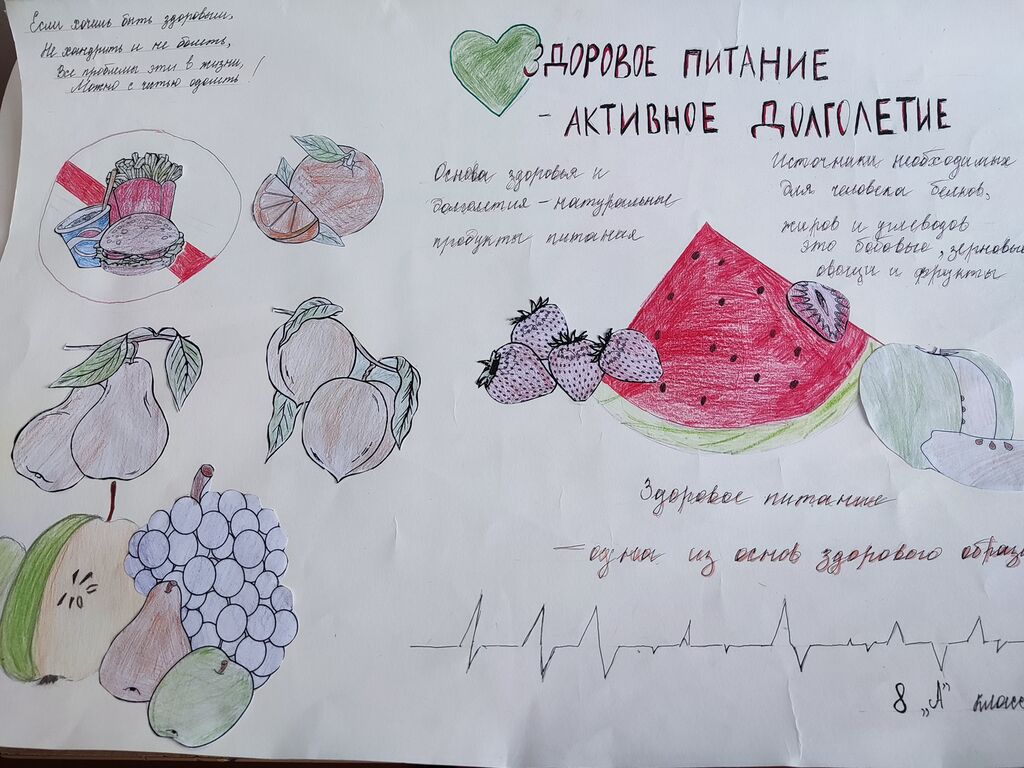 Если хочешь быть здоровым,
Не хандрить и не болеть,
Все проблемы эти в жизни,
Можно с честью одолеть!
ЗДОРОВОЕ ПИТАНИЕ
- АКТИВНОЕ ДОЛГОЛЕТИЕ
Основа здоровья и
долголетия - натуральные
продукты питания
Источники необходимых
для человека белков,
жиров и углеводов
это бобовые, зерновые
овощи и фрукты
Здоровое питание
- одна из основ здорового образа
8 „А" класс